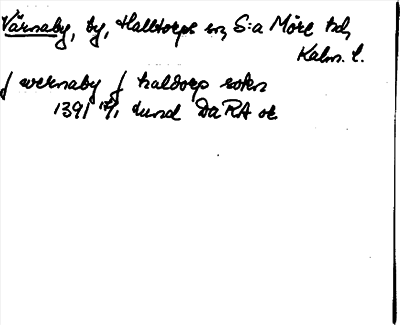 Värnaby, by, Halltorps sn, S:a Möre hd,
Kalm. l.
j wernaby j haldorp sokn
1391 17/1 Lund DaRA or.